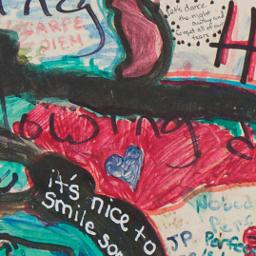 ng
CARPE
DIEM
Let's dance
the night
away and
forget all of our
fears
H
owing d
it's nice to
smile som
Nobod
Perf
J.P. Perfec